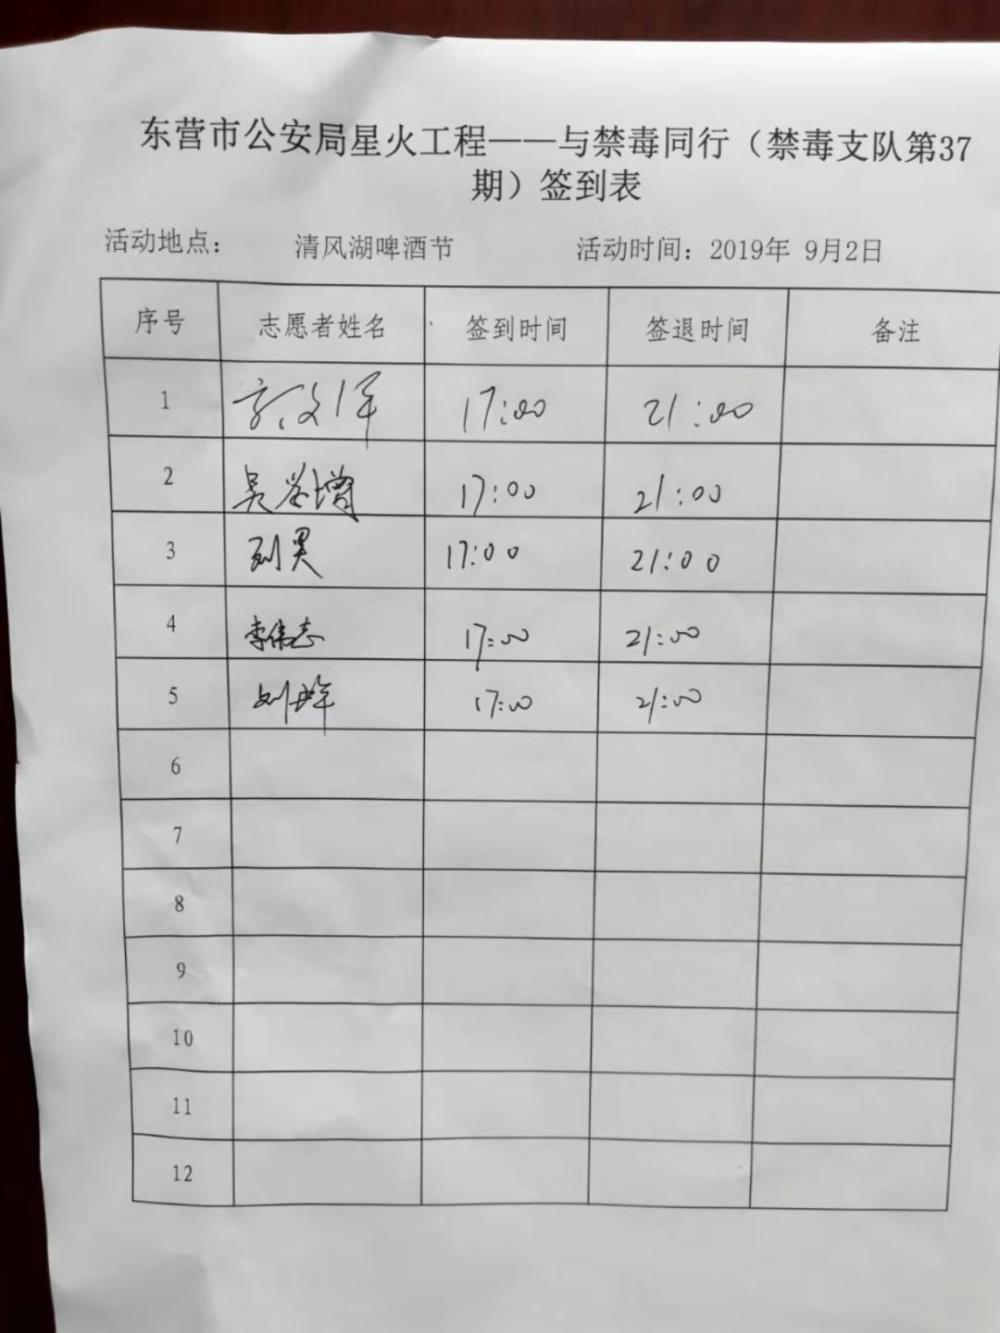 东营市公安局星火工程——与禁毒同行（禁毒支队第37
期）签到表
活动地点： 清风湖啤酒节 活动时间：2019年 9月2日
序号 志愿者姓名 签到时间 签退时间 备注
1 17:00 21:00
2 17:00 21:00
3 刘昊 17:00 21:00
4 李伟志 17:00 21:00
5 刘 17:00 21:00
6
7
8
9
10
11
12